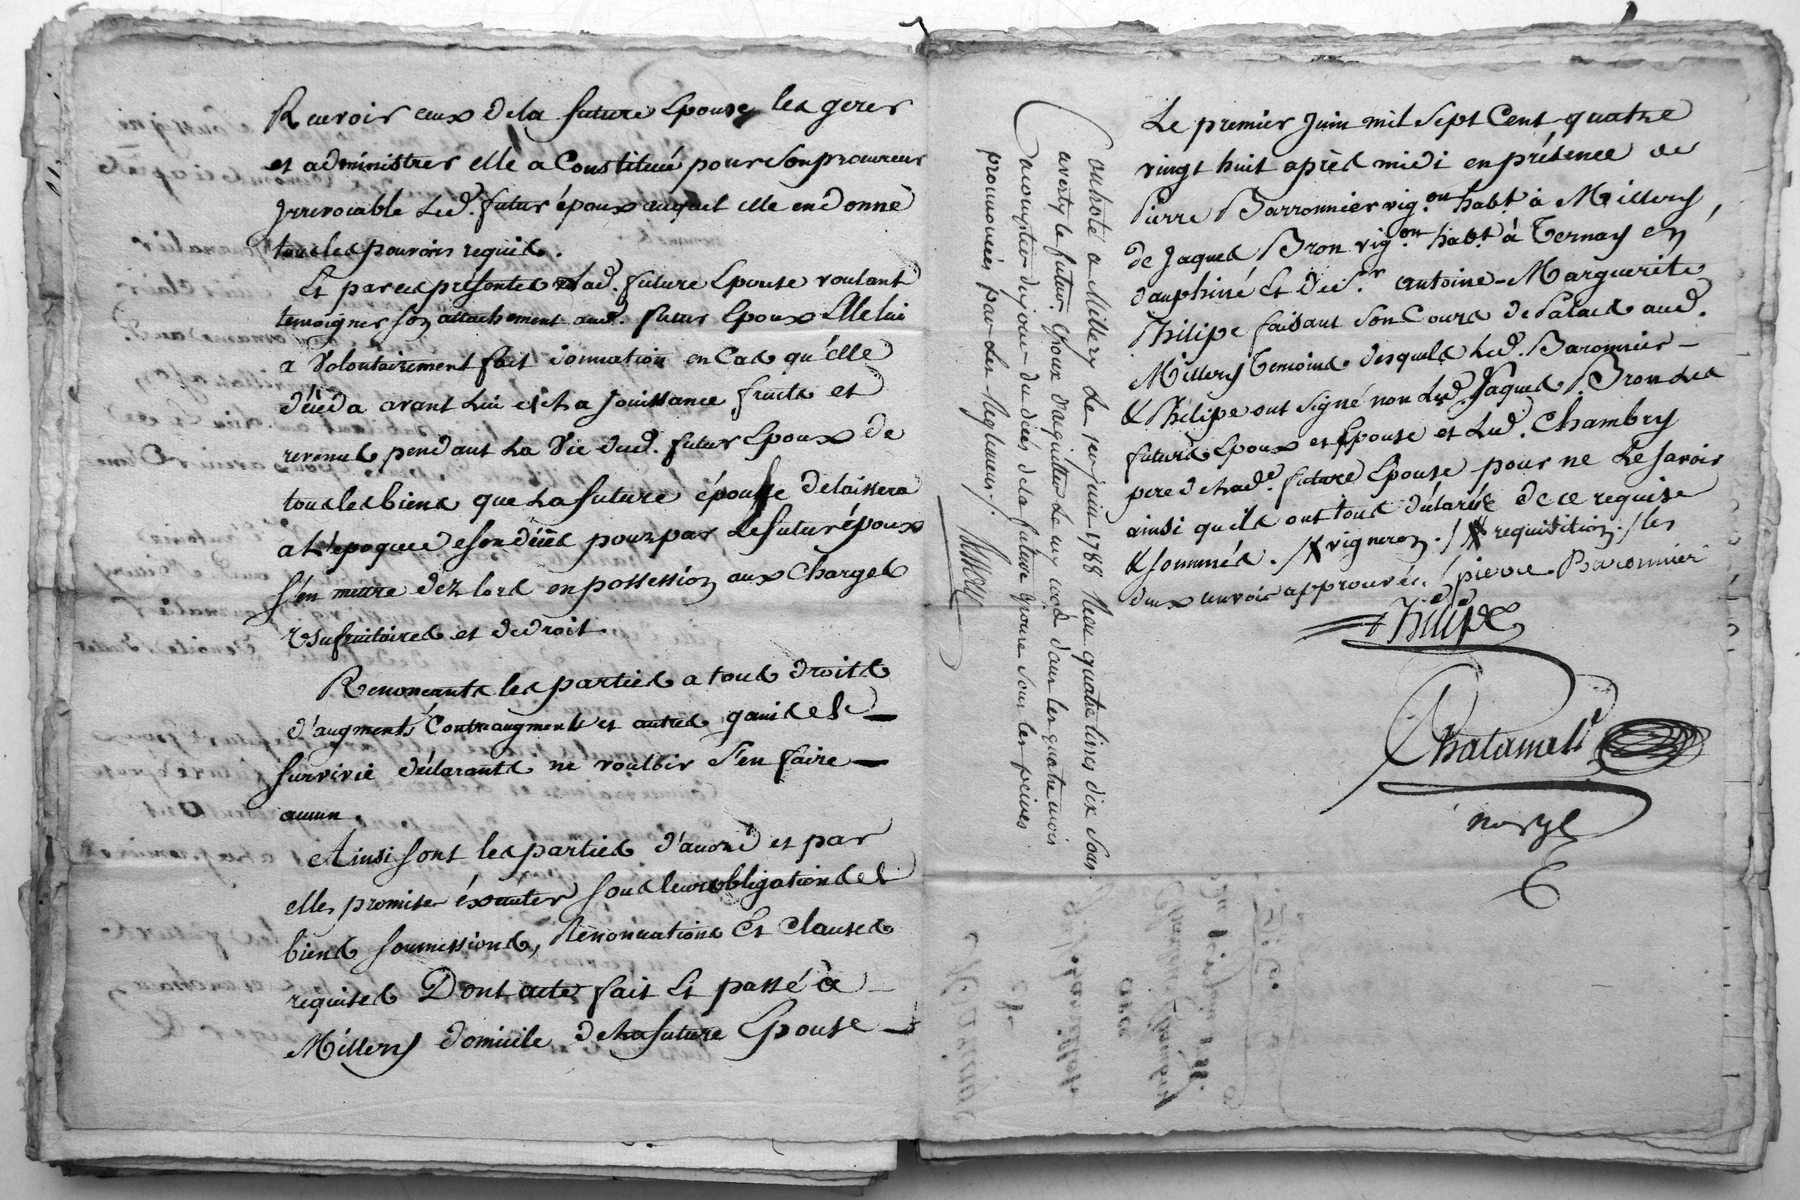 Recevoir ceux de la future Epouse, les gerer
et administrer elle a Constitué pour son procureur
Irrevocable Led. futur époux auquel elle en donné
tous les pouvoirs requis.
Et par ces présentes Lad. future Epouse voulant
temoigner son attachement aud. futur Epoux Elle lui
a Volontairement fait donnation en Cas qu'elle
décéda avant Lui de La Jouissance fruits et
revenus pendant La Vie dud. futur Epoux de
tous les biens que La future épouse delaissera
a L'epoque de son décès pour par Le futur époux
s'en mettre dèz lors en possession aux Charges
Usufruitaires et de droit
Renonceants les parties a tous droits
d'augments Contraugments et autres gains de
survivie déclarants ne vouloir s'en faire
aucun.
Ainsi sont les parties d'accord et par
elles promis exécuter sous leurs obligations de
biens soumissions, Renonciations Et Clauses
requises Dont acte fait Et passé à
Millery domicile de La future Epouse
Le premier Juin mil sept Cent quatre
vingt huit après midi en présence de
Pierre Barronnier vig.on hab.t à Millery,
de Jaques Bron vig.on hab.t à Ternay en
dauphiné Et de S.r antoine-Marguerite
Philipe faisant son Cours de Palais aud.
Millery temoins desquels Led. Baronnier
& Philipe ont signé non Led. Jaques Bron Les
futurs Epoux et Epouse et Led. Chambry
pere de Lad.e future Epouse pour ne Le savoir
ainsi qu'ils ont tous déclarés de ce requise
& sommés. /X vigneron./ X requisition./ les
deux renvois approuvés. pierre Baronnier
Philipe
Chatanel
Controlé a Millery Le 1er juin 1788 Reçu quatre livres dix sous
averty le futur Epoux d'acquitter le dans les quatre mois
a compter du jour du décès de la future Epouse sous les peines
prononcées par les Reglemens.